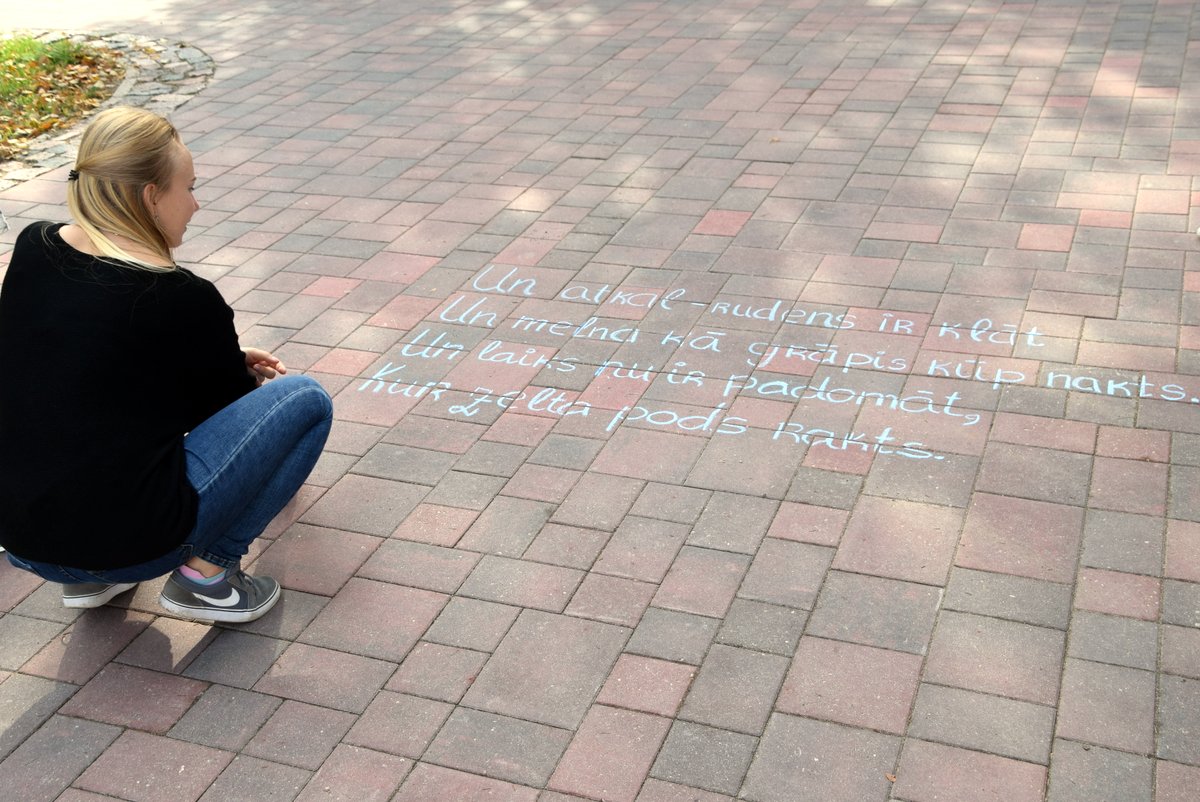 Un atkal - rudens ir klāt
Un melna kā grāpis kūp nakts.
Un laiks nu ir padomāt,
Kur zelta pods rakts.